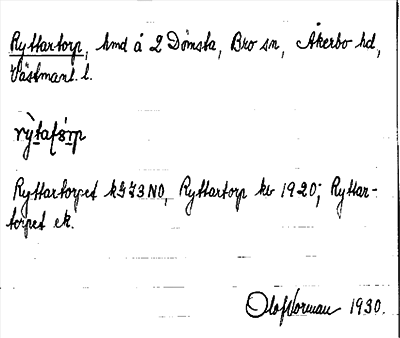 Ryttartorp, hmd å 2 Dömsta, Bro sn, Åkerbo hd,
Västmanl. l.
Ryttartorpet k 73 NO, Ryttartorp kb 1920; Ryttar-
torpet ek.
Olof Norman 1930.